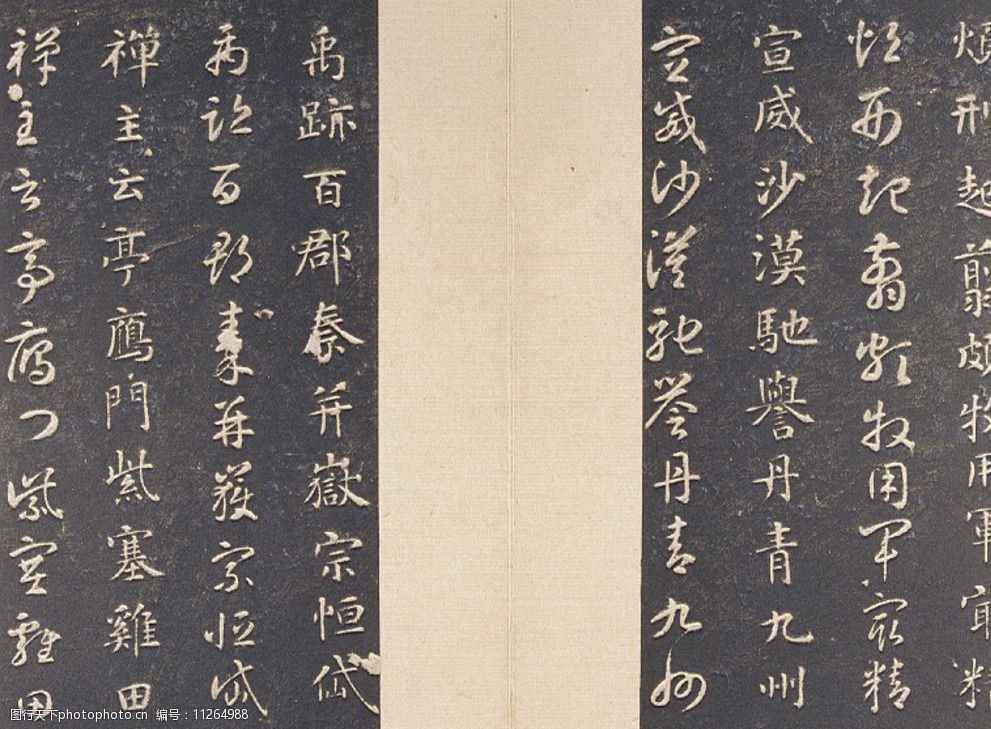 煩刑起翦頗牧用軍最精
煩刑起翦頗牧用軍最精
宣威沙漠馳譽丹青九州
宣威沙漠馳譽丹青九州
禹跡百郡秦并嶽宗恒岱
禹跡百郡秦并嶽宗恒岱
禪主云亭鴈門紫塞雞田
禪主云亭鴈門紫塞雞田
图行天下photophoto.cn 编号：11264988